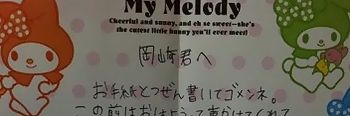 My Melody
Cheerful and sunny, and oh so sweet—she's
the cutest little bunny you'll ever meet!
岡崎君へ
お手紙とつぜん書いてゴメンネ。
この前はおはようって声かけてくれて